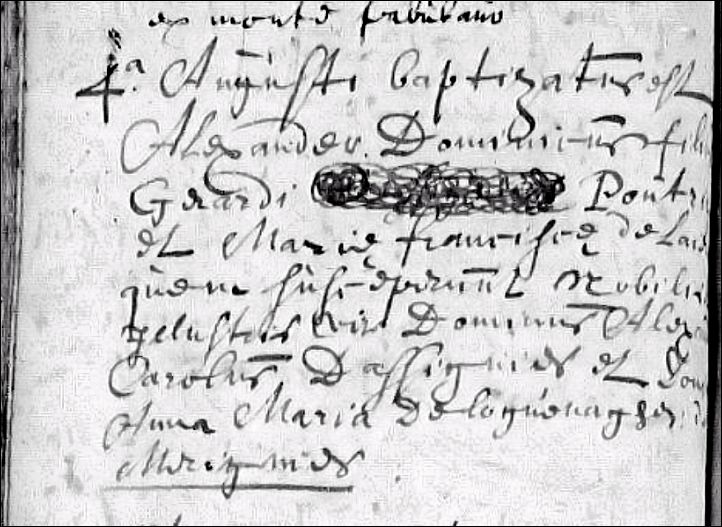 ex monte
4.a Augusti baptizatus est
Alexander Dominicus fili
Gerardi Pontr
et Marie francisce de la
quem susceperunt Nobilis
Dominus Alex
Carolus Dassignies et Dom
Anna Maria De
Merignies